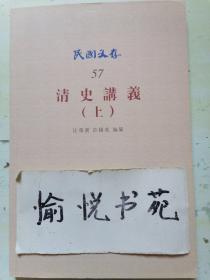 民國文存
57
清史講義
（上）
汪榮寶 許國英 編纂
愉悦书苑